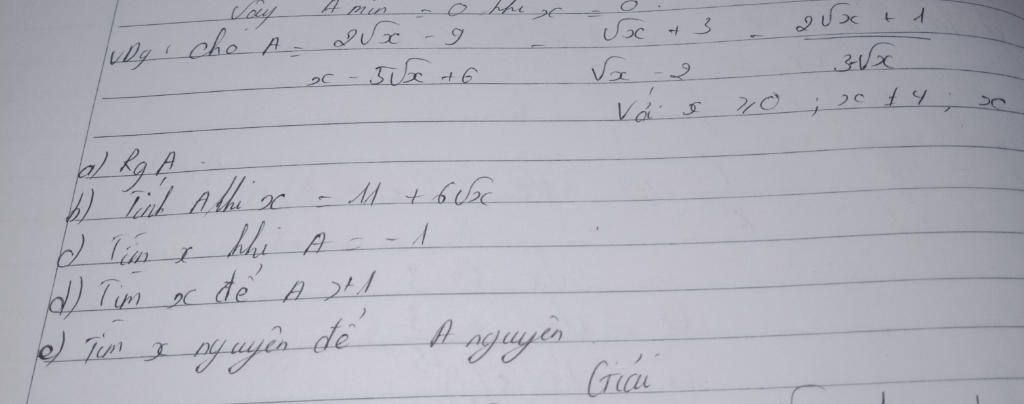 Vậy A min = 0 khi x = 0.
VD9: Cho A = 2√x - 9 / x - 5√x + 6 - √x + 3 / √x - 2 - 2√x + 1 / 3-√x
Với x ≥ 0 ; x ≠ 4 ; x
a) Rg A.
b) Tính A khi x = 11 + 6√x
c) Tìm x khi A = -1
d) Tìm x để A > 1
e) Tìm x nguyên để A nguyên
Giải